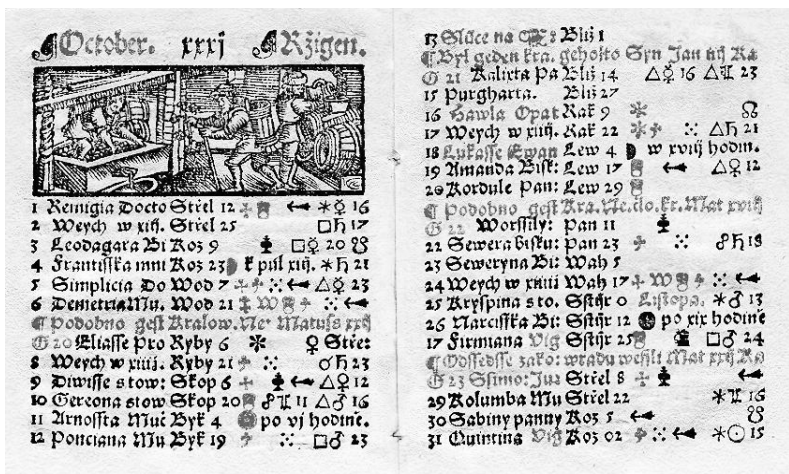 October. xxxj Ržigen.
1 Remigia Docto Střel 12 ✶♀ 16
2 Weych w xiij. Střel 25 □♄ 17
3 Leodagara Bi Koz 9 □☿ 20 ☋
4 Frantisska mni Koz 23 k půl xiij. ✶♄ 21
5 Simplicia Do Wod 7 △☿ 23
6 Demetria Mu. Wod 21
¶ Podobno gest Kralow. Ne° Matuss xxij
G 20 Eliasse Pro Ryby 6 ♀ Stře:
8 Weych w xiiij. Ryby 21 ☌♄ 23
9 Diwisse s tow: Skop 6 △♀ 12
10 Gereona s tow Skop 20 ☍♃ 11 △♂ 16
11 Arnossta Muč Byk 4 po vj hodině.
12 Ponciana Mu Byk 19 □♂ 23
13 Sláce na Bliž 1
¶ Byl geden kra. gehožto Syn Jan iiij Ka
G 21 Kalixta Pa Bliž 14 △♀ 16 △♃ 23
15 Purgharta. Bliž 27
16 Hawla Opat Rak 9 ☊
17 Weych w xiiij. Rak 22 △♄ 21
18 Lukasse Ewan Lew 4 w xviij hodin.
19 Amanda Bisk: Lew 17 △♀ 12
20 Kordule Pan: Lew 29
¶ Podobno gest Kra. Ne. čło. kr. Mat xviij
G 22 Worssily: Pan 11
22 Sewera bisku: Pan 23 ☍♄ 18
23 Seweryna Bi: Wah 5
24 Weych w xiiij Wah 17
25 Kryspina s to. Sstijr 0 Listopa. ✶♂ 13
26 Narcisska Bi: Sstijr 12 po xix hodině
17 Firmiana Vig Sstijr 25 □♂ 24
¶ Odssedsse zako: w radu wessli Mat xxij Ka
G 23 Ssimo: Jud Střel 8
29 Kolumba Mu Střel 22 ✶♃ 16
30 Sabiny panny Koz 5 ☋
31 Quintina Vig Koz 02 ✶☉ 15